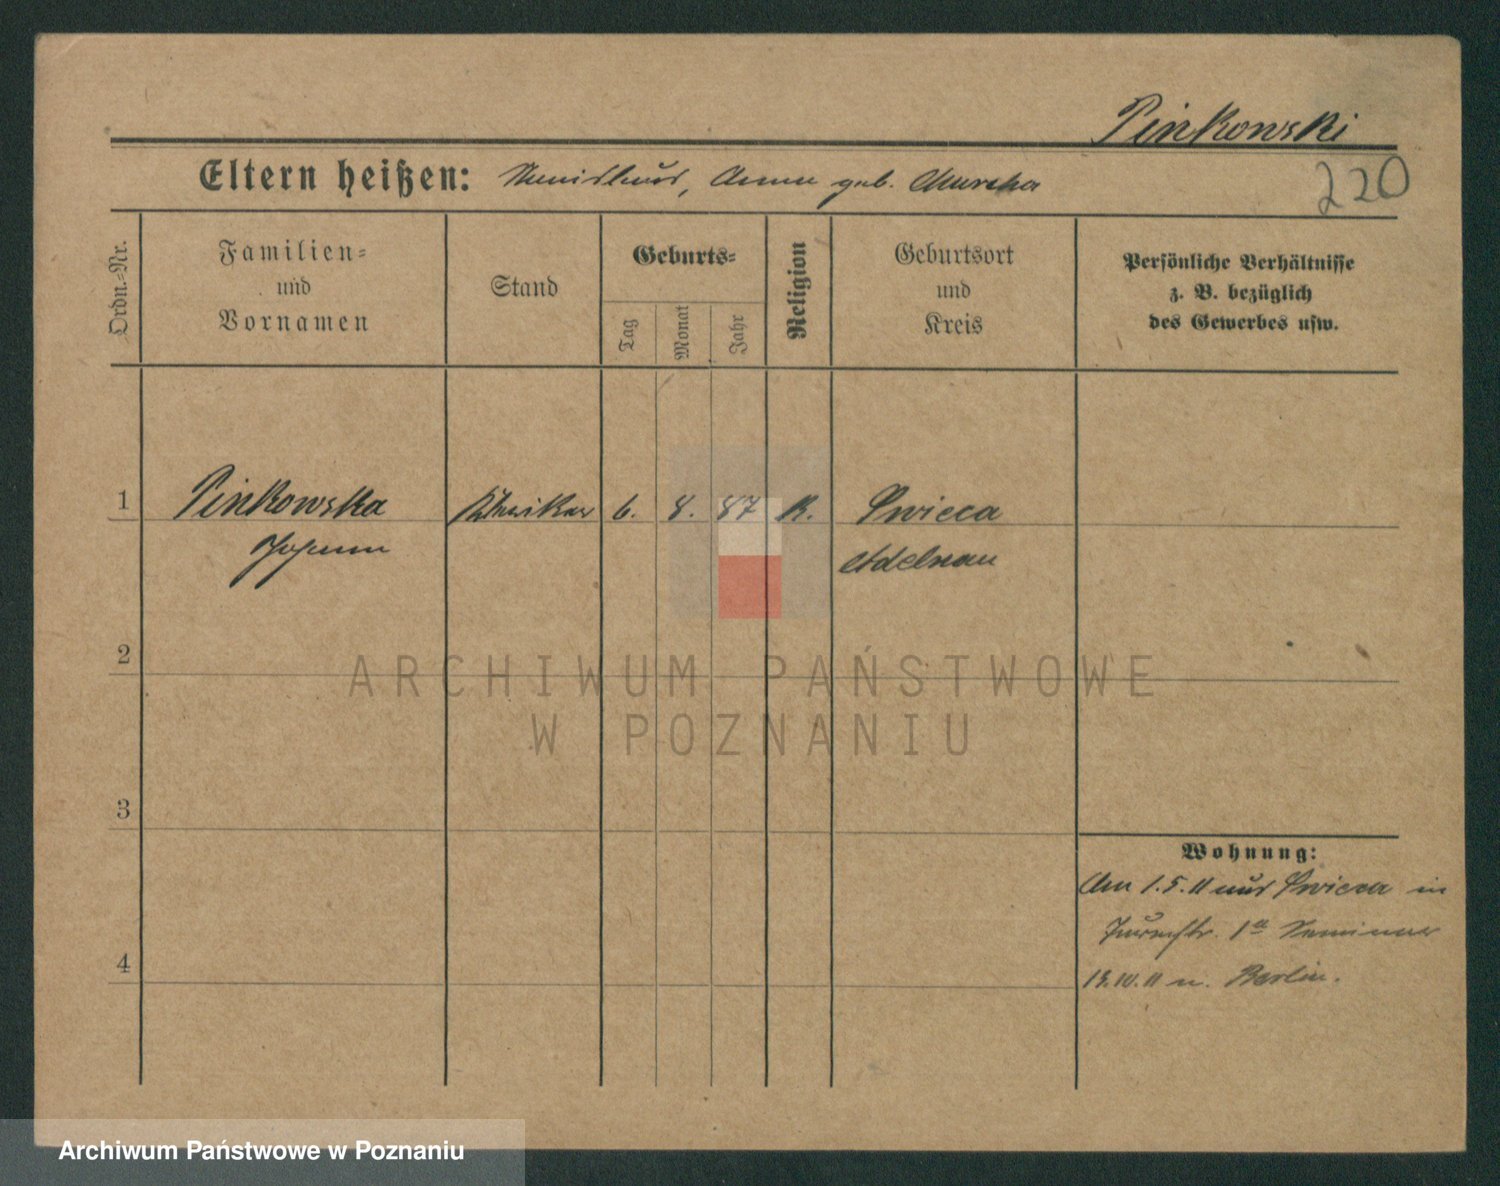 Pinkowski
Eltern heißen: Stanislaus, Anna geb.
220
Ordn.-Nr.
Familien-
und
Vornamen
Stand
Geburts-
Tag
Monat
Jahr
Religion
Geburtsort
und
Kreis
Persönliche Verhältnisse
z. B. bezüglich
des Gewerbes usw.
1
Pinkowska
6. 8. 87 K. Swieca
Adelnau
2
ARCHIWUM PAŃSTWOWE
W POZNANIU
3
Wohnung:
Am 1.5.11 aus Swieca in
4
n. Berlin.
Archiwum Państwowe w Poznaniu